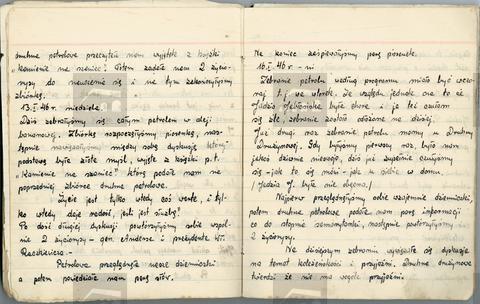 druhna patrolowa przeczytała nam wyjątek z książki
"Kamienie na szaniec". Potem zadała nam 2 życio-
rysy do nauczenia się i na tym zakończyłyśmy
zbiórkę.
13.I.46 r. niedziela
Dziś zebrałyśmy się całym patrolem w izbie
harcowej. Zbiórkę rozpoczęłyśmy piosenką, nas-
tępnie nawiązałyśmy między sobą dyskusję której
podstawą była złota myśl, wyjęta z książki p.t.
"Kamienie na szaniec" którą podała nam na
poprzedniej zbiórce druhna patrolowa.
Życie jest tylko wtedy coś warte, i tyl-
ko wtedy daje radość jeśli jest służbą!
Po dość długiej dyskusji powtórzyłyśmy sobie wspól-
nie 2 życiorysy - gen. Andersa i prezydenta Wł.
Raczkiewicza -
Patrolowa przeglądnęła nasze dzienniczki
a potem powiedziała nam parę słów.
Na koniec zaśpiewałyśmy parę piosenek.
16.I.46 r. - ni
Zebranie patrolu według programu miało być wczo-
raj t.j. we wtorek. Ze względu jednak na to że
Jadzia była chora i ja też czułam
się źle, zebranie zostało odłożone na dzisiaj.
Już drugi raz zebranie patrolu mamy u Druhny
Drużynowej. Gdy byłyśmy pierwszy raz, było nam
jakoś dziwnie nieswojo, dziś już zupełnie czujemy
się - jak to się mówi - jak u siebie w domu.
/Jadzia J. była nie obecna/
Najpierw przeglądnęłyśmy sobie wzajemnie dzienniczki,
potem druhna patrolowa podała nam parę informacji
co do stopnia samarytanki, następnie powtórzyłyśmy
2 życiorysy.
Na dzisiejszym zebraniu wywiązała się dyskusja
na temat koleżeństwa i przyjaźni. Druhna drużynowa
twierdzi że nie ma wogóle przyjaźni